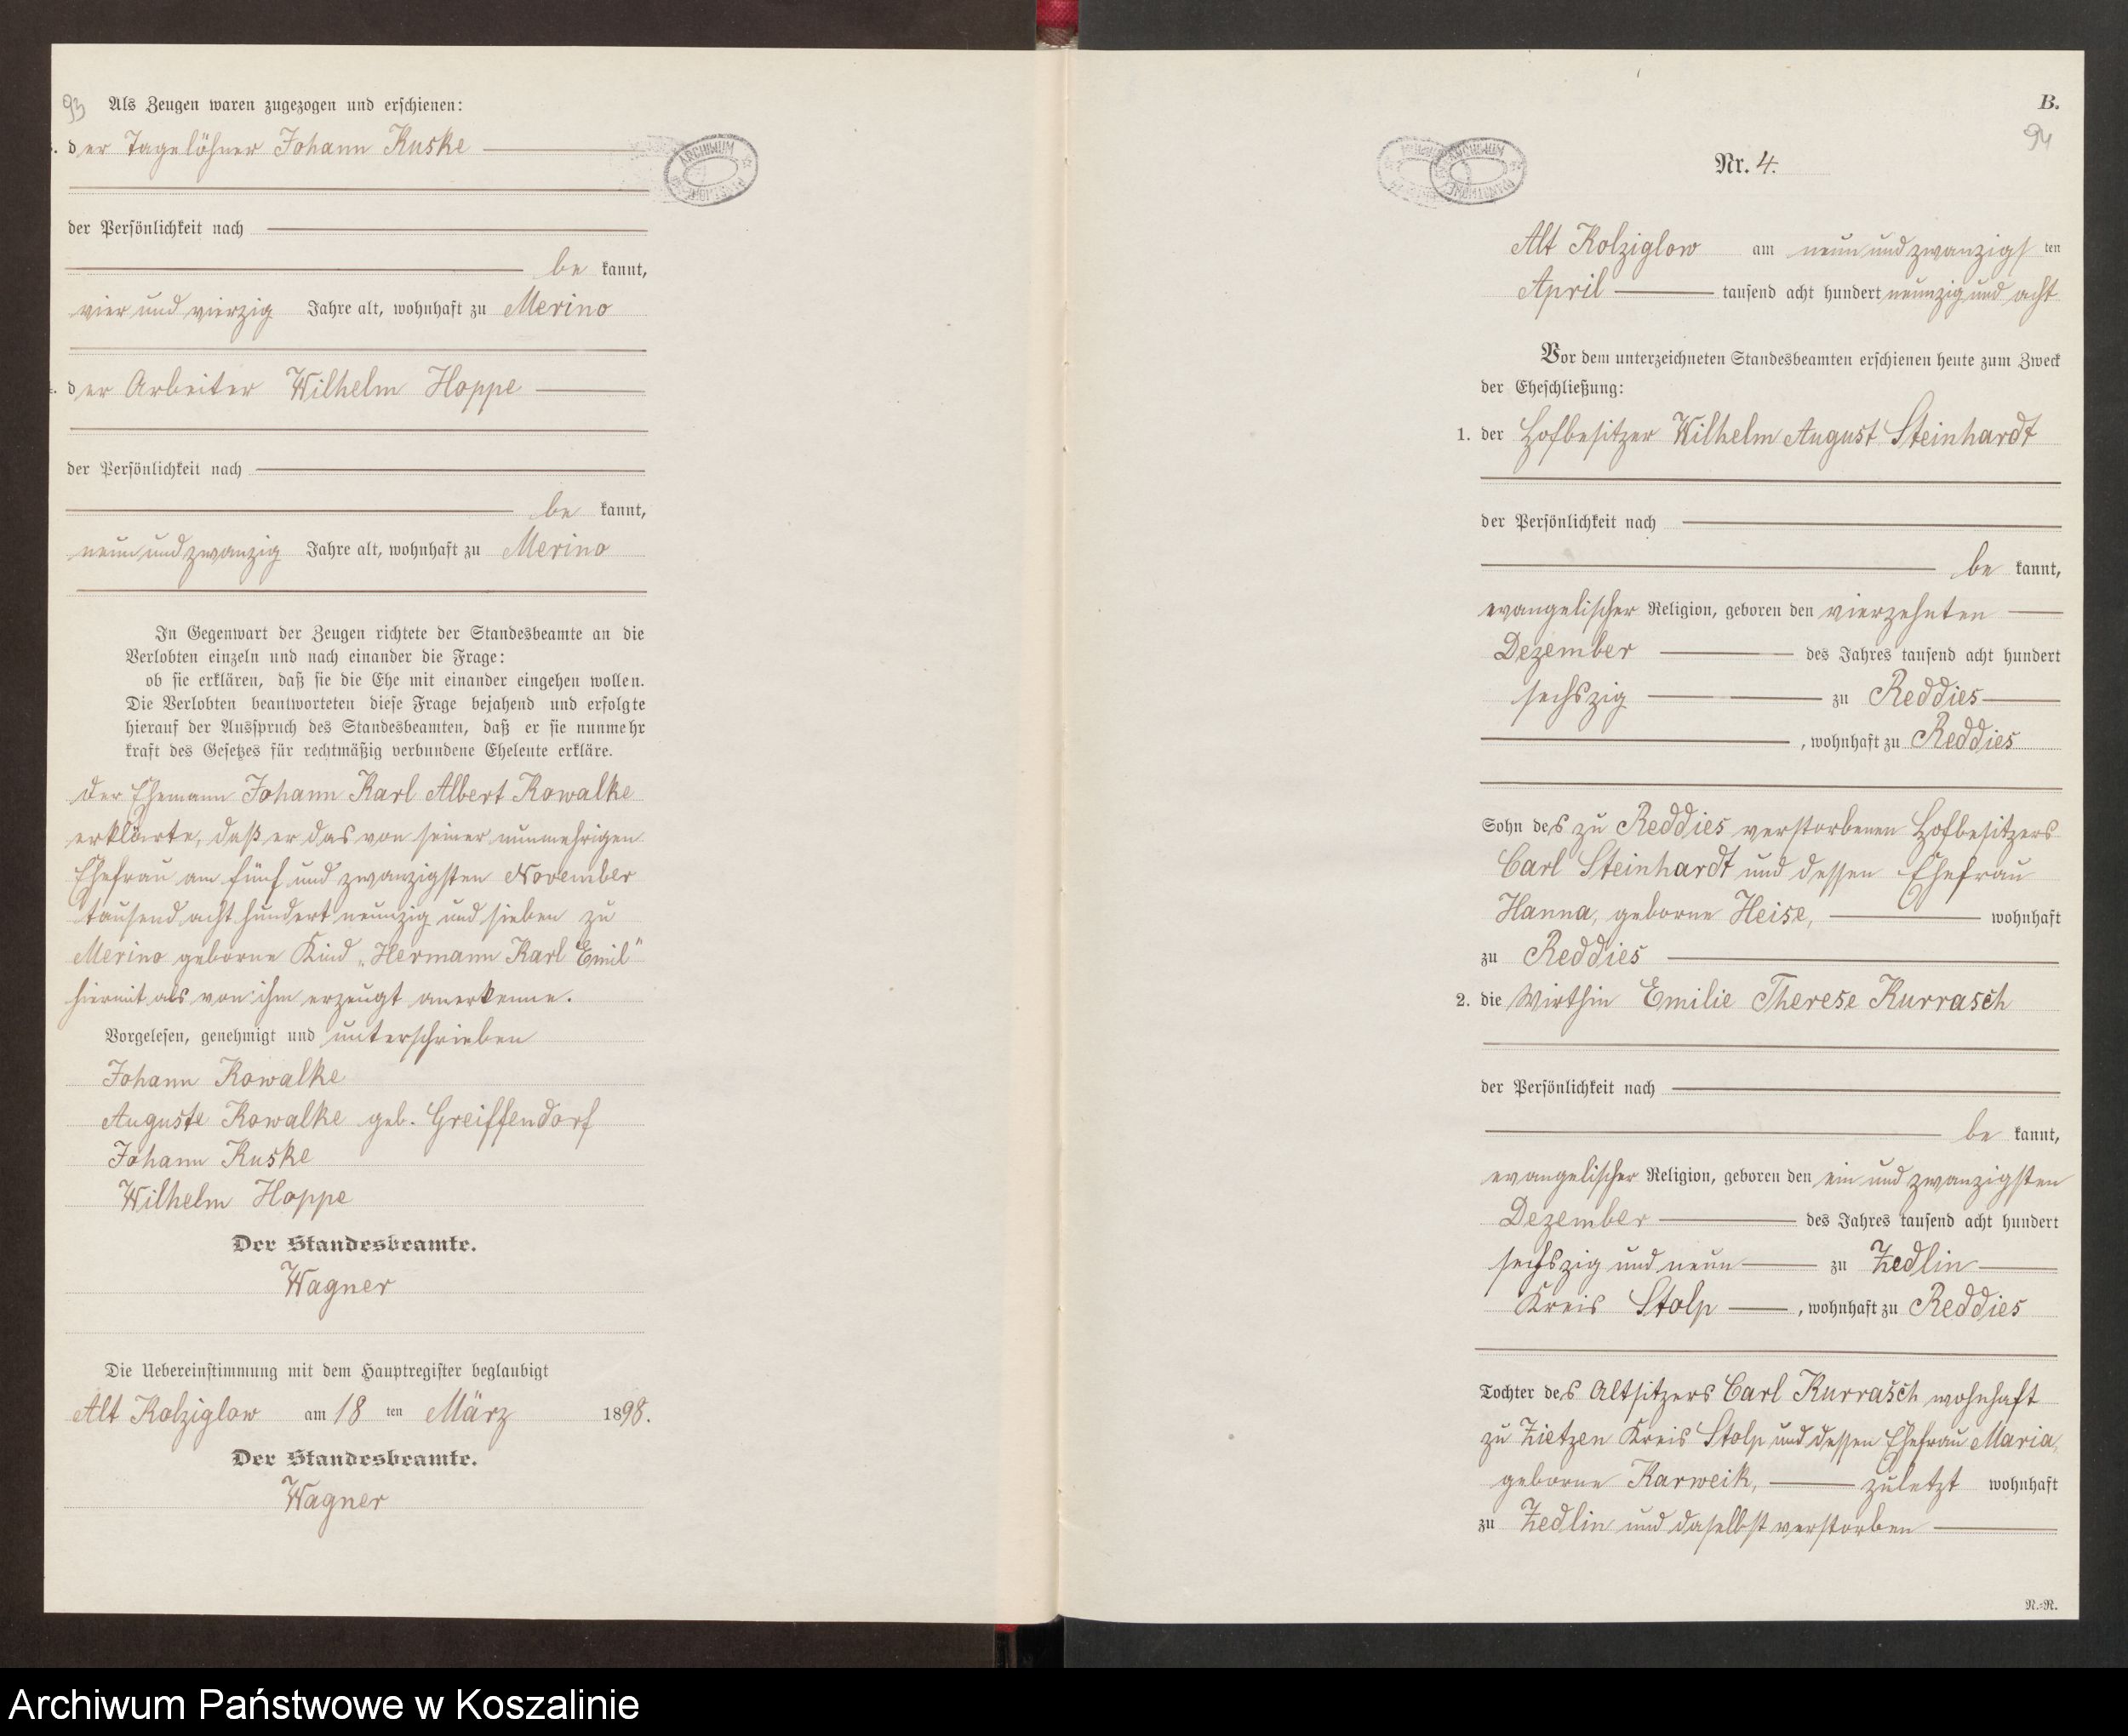 93 Als Zeugen waren zugezogen und erschienen:
der Tagelöhner Johann Kuske
der Persönlichkeit nach
be kannt,
vier und vierzig Jahre alt, wohnhaft zu Merino
der Arbeiter Wilhelm Hoppe
der Persönlichkeit nach
be kannt,
neun und zwanzig Jahre alt, wohnhaft zu Merino
In Gegenwart der Zeugen richtete der Standesbeamte an die
Verlobten einzeln und nach einander die Frage:
ob sie erklären, daß sie die Ehe mit einander eingehen wollen.
Die Verlobten beantworteten diese Frage bejahend und erfolgte
hierauf der Ausspruch des Standesbeamten, daß er sie nunmehr
kraft des Gesetzes für rechtmäßig verbundene Eheleute erkläre.
Der Ehemann Johann Karl Albert Kowalke
erklärte, daß er das von seiner nunmehrigen
Ehefrau am fünf und zwanzigsten November
tausend acht hundert neunzig und sieben zu
Merino geborne Kind „Hermann Karl Emil"
hiermit als von ihm erzeugt anerkenne.
Vorgelesen, genehmigt und unterschrieben
Johann Kowalke
Auguste Kowalke geb. Greiffendorf
Johann Kuske
Wilhelm Hoppe
Der Standesbeamte.
Wagner
Die Uebereinstimmung mit dem Hauptregister beglaubigt
Alt Kolziglow am 18 ten März 1898.
Der Standesbeamte.
Wagner
ARCHIWUM
B.
94
ARCHIWUM
Nr. 4.
Alt Kolziglow am neun und zwanzigs ten
April tausend acht hundert neunzig und acht
Vor dem unterzeichneten Standesbeamten erschienen heute zum Zweck
der Eheschließung:
1. der Hofbesitzer Wilhelm August Steinhardt
der Persönlichkeit nach
be kannt,
evangelischer Religion, geboren den vierzehnten
Dezember des Jahres tausend acht hundert
sechszig zu Reddies
, wohnhaft zu Reddies
Sohn des zu Reddies verstorbenen Hofbesitzers
Carl Steinhardt und dessen Ehefrau
Hanna, geborne Heise, wohnhaft
zu Reddies
2. die Wirthin Emilie Therese Kurrasch
der Persönlichkeit nach
be kannt,
evangelischer Religion, geboren den ein und zwanzigsten
Dezember des Jahres tausend acht hundert
sechszig und neun zu Zedlin
Kreis Stolp , wohnhaft zu Reddies
Tochter des Altsitzers Carl Kurrasch wohnhaft
zu Zietzen Kreis Stolp und dessen Ehefrau Maria,
geborne Karweik, zuletzt wohnhaft
zu Zedlin und daselbst verstorben
N.-N.
Archiwum Państwowe w Koszalinie